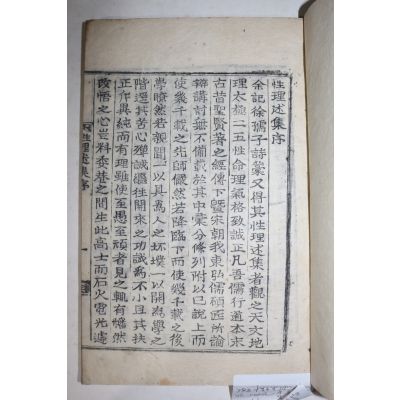 性理述集序
余記徐儒子詩彙又得其性理述集者觀之天文地
理太極二五性命理氣格致誠正凡吾儒行道本末
古昔聖賢著之經傳下曁宋朝我東弘儒碩匠所論
辨講討無不備載於其中彙分條列附以己說上而
使幾千載之先師儼然若降臨下而使幾千載之後
學瞭然若親聞一以具爲人之坯墣一以開爲學之
階逕其苦心殫誠繼往開來之功誠爲不小且其扶
正斥異純而有理雖使至愚至頑者見之輒有惕然
改悟之心豈料委巷之間生此高士而石火電光遽
性理述集序
一